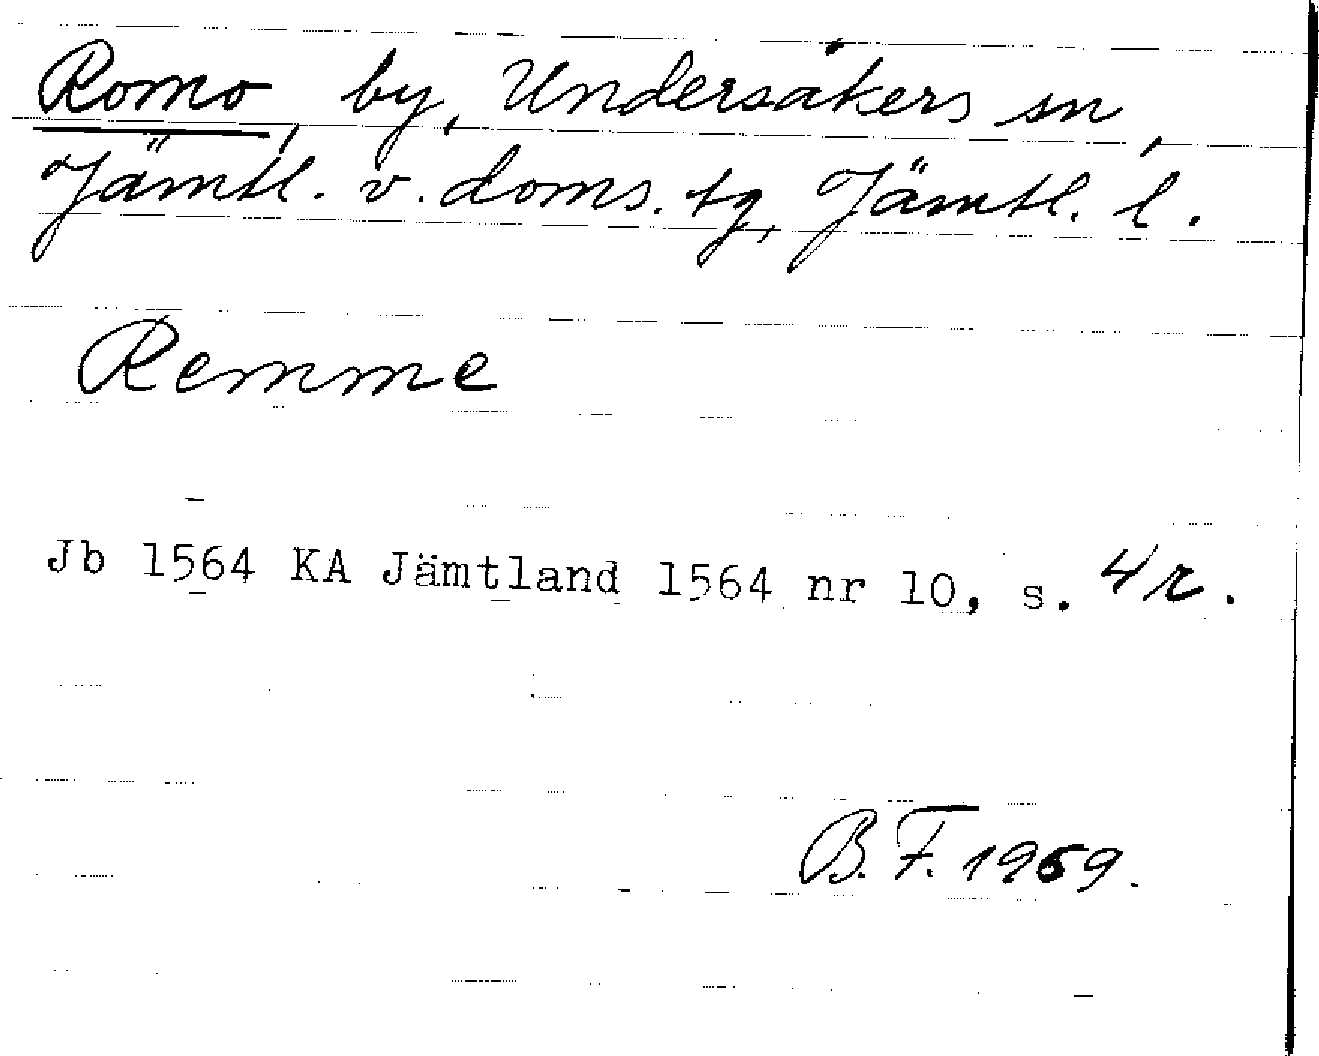 Romo, by, Undersåkers sn,
Jämtl. v. doms. tg, Jämtl. l.
Remme
Jb 1564 KA Jämtland 1564 nr 10, s. 4 r.
B. F. 1969.